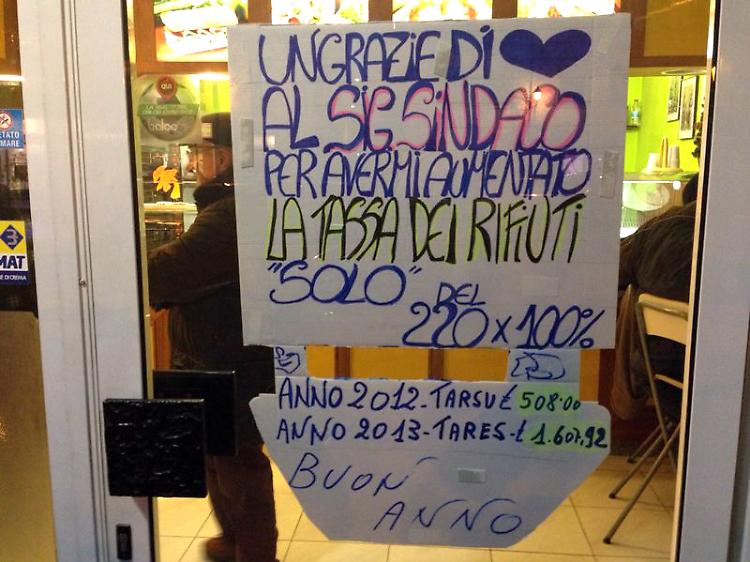 UN GRAZIE DI
AL SIG. SINDACO
PER AVERMI AUMENTATO
LA TASSA DEI RIFIUTI
"SOLO" DEL
220 x 100%
ANNO 2012 - TARSU £ 508.00
ANNO 2013 - TARES - £ 1.607,92
BUON
ANNO
QUI
3
MAT